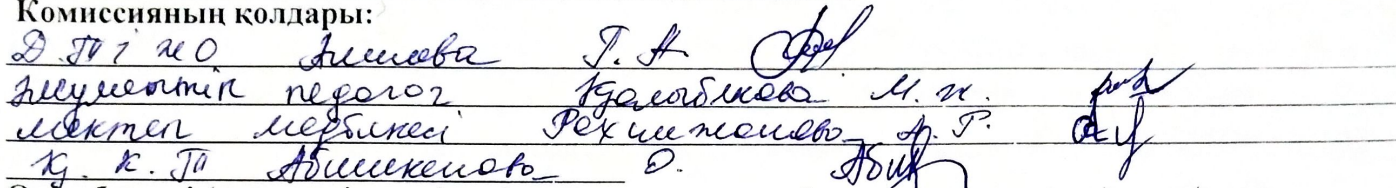 Комиссияның қолдары:
Д.ТІ ЖО Алиева Г. А
Әлеуметтік педагог Қдалыбекова М. Ж.
мектеп медбикесі Рахимжанова А. Г.
Қ. К. Т Абишкенова О.